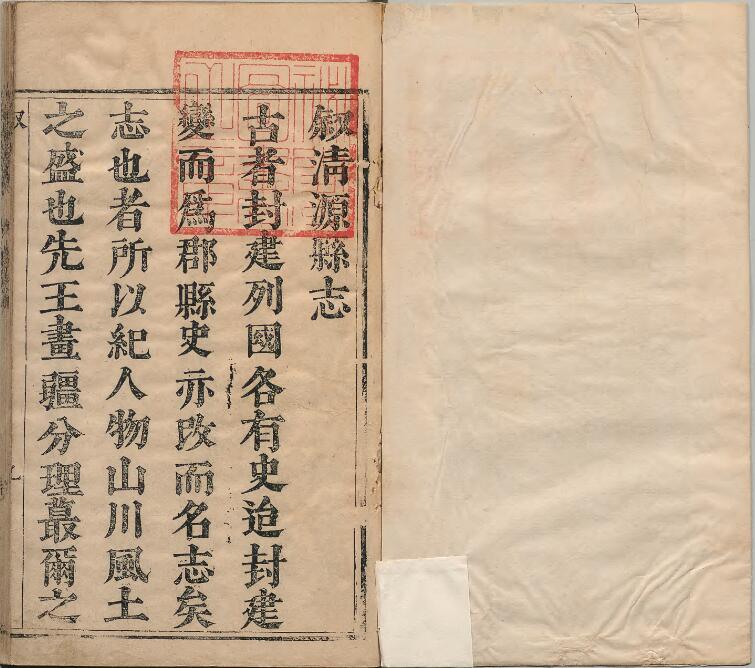 叙清源縣志
古者封建列國各有史迨封建
變而爲郡縣史亦改而名志矣
志也者所以紀人物山川風土
之盛也先王畫疆分理蕞爾之
叙